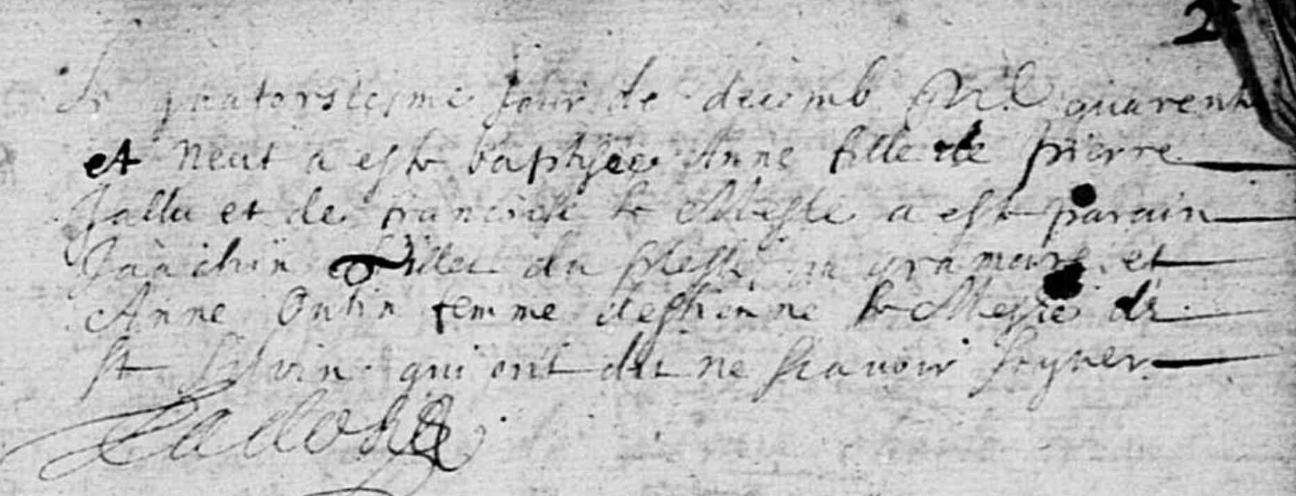 2
Le quatorsiesme Jour de decemb Mil quarente
et neuf a este baptisee Anne fille de pierre
Jallu et de francoise le Mesle a este parain
Joachin du plessis gramaire et
Anne Outin femme destienne le Mesle de
St Silvin qui ont dit ne scavoir signer